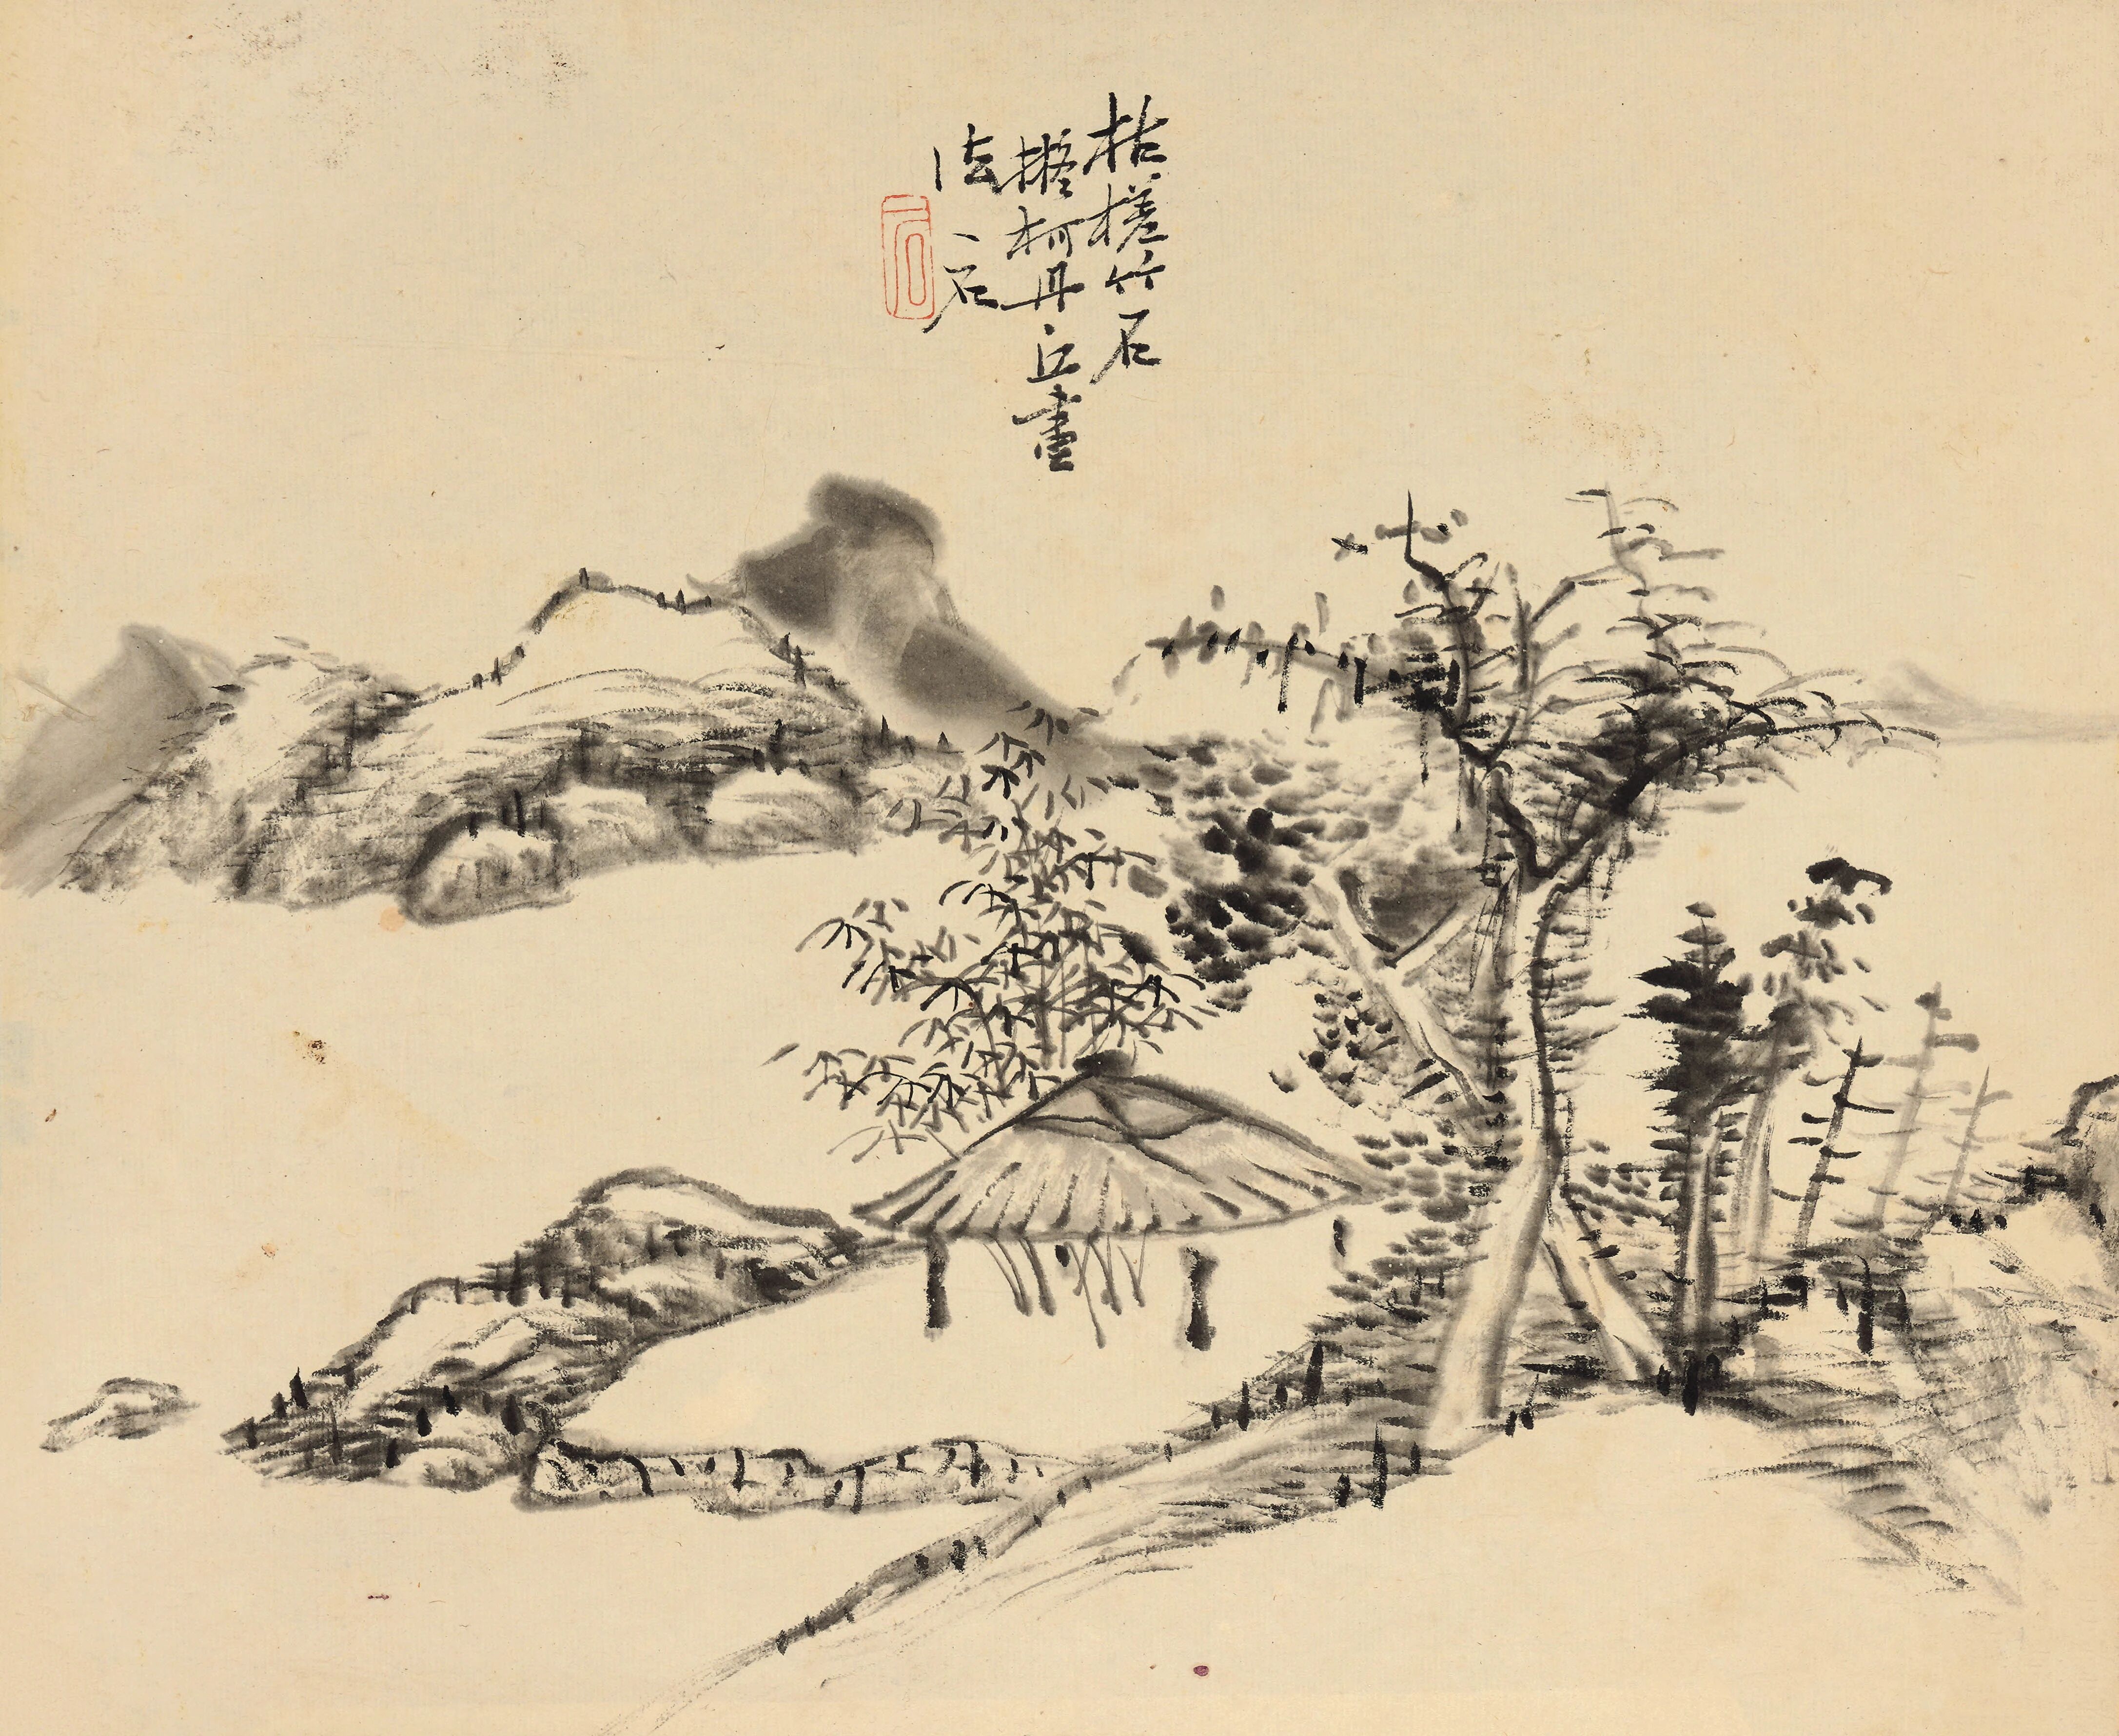 枯槎竹石
擬柯丹丘畫
法 石